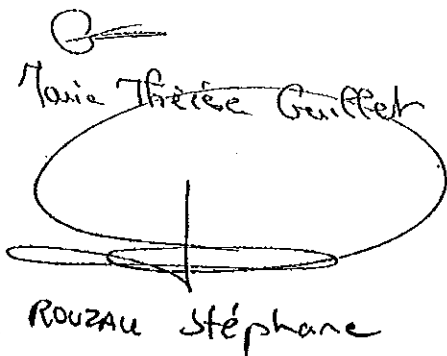 Marie Thérèse Guillet
ROUZAU Stéphane